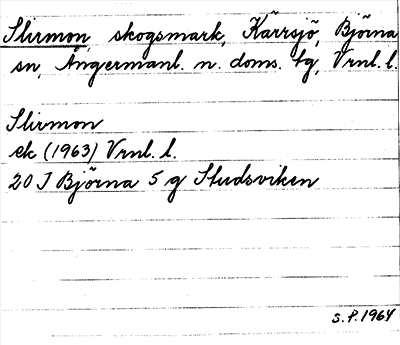 Slirmon, skogsmark, Kärrsjö, Björna
sn, Ångermanl. n. doms. tg, Vrnl. l.
Slirmon
ek (1963) Vrnl. l.
20 J Björna 5 g Studsviken
S.P. 1964